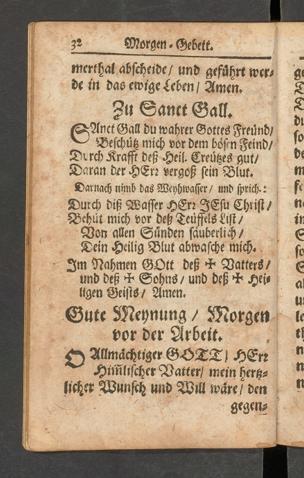 32 Morgen-Gebett.
merthal abscheide/ und geführt wer-
de in das ewige Leben/ Amen.
Zu Sanct Gall.
SAnct Gall du wahrer Gottes Freünd/
Beschütz mich vor dem bösen Feind/
Durch Krafft deß Heil. Creützes gut/
Daran der HErr vergoß sein Blut.
Darnach nimb das Weyhwasser/ und sprich.:
Durch diß Wasser HErr JEsu Christ/
Behüt mich vor deß Teüffels List/
Von allen Sünden säuberlich/
Dein Heilig Blut abwasche mich.
Im Nahmen GOtt deß ✠ Vatters/
und deß ✠ Sohns/ und deß ✠ Hei-
ligen Geists/ Amen.
Gute Meynung/ Morgen
vor der Arbeit.
O Allmächtiger GOTT/ HErr
Him̃lischer Vatter/ mein hertz-
licher Wunsch und Will wäre/ den
gegen-